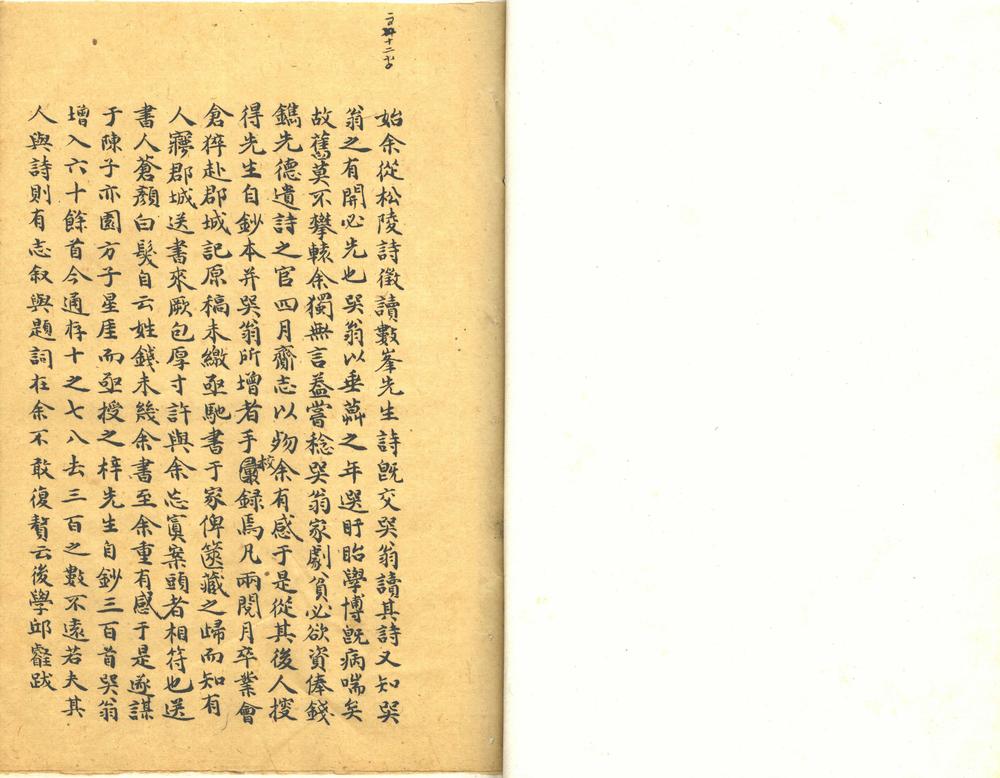 始余從松陵詩徵讀數峯先生詩旣交哭翁讀其詩又知哭
翁之有開必先也哭翁以垂暮之年選盱眙學博旣病喘矣
故舊莫不攀轅余獨無言葢嘗稔哭翁家劇貧必欲資俸錢
鐫先德遺詩之官四月齎志以歾余有感于是從其後人搜
得先生自鈔本并哭翁所增者手校錄焉凡兩閱月卒業會
倉猝赴郡城記原稿未繳亟馳書于家俾篋藏之歸而知有
人寱郡城送書來厥包厚寸許與余忘寘案頭者相符也送
書人蒼顏白髮自云姓錢未幾余書至余重有感于是遂謀
于陳子亦園方子星厓而亟授之梓先生自鈔三百首哭翁
增入六十餘首今通存十之七八去三百之數不遠若夫其
人與詩則有志叙與題詞在余不敢復贅云後學邱罋跋